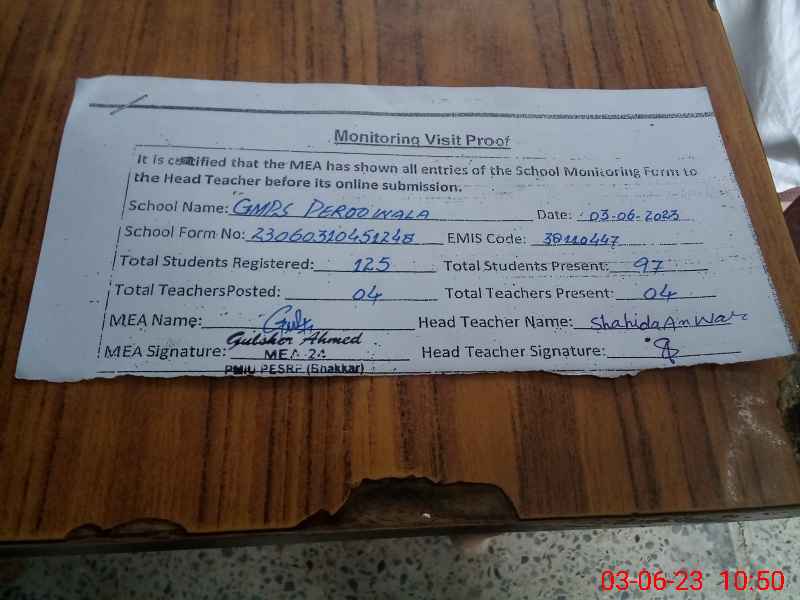 Monitoring Visit Proof
It is certified that the MEA has shown all entries of the School Monitoring Form to
the Head Teacher before its online submission.
School Name: GMPS PEROOWALA Date: 03-06-2023
School Form No: 23060310451248 EMIS Code: 38110447
Total Students Registered: 125 Total Students Present: 97
Total TeachersPosted: 04 Total Teachers Present: 04
MEA Name: Head Teacher Name: Shahida Anwar
Gulsher Ahmed
MEA Signature: MEA-24 Head Teacher Signature:
PMIU PESRP (Bhakkar)
03-06-23 10:50